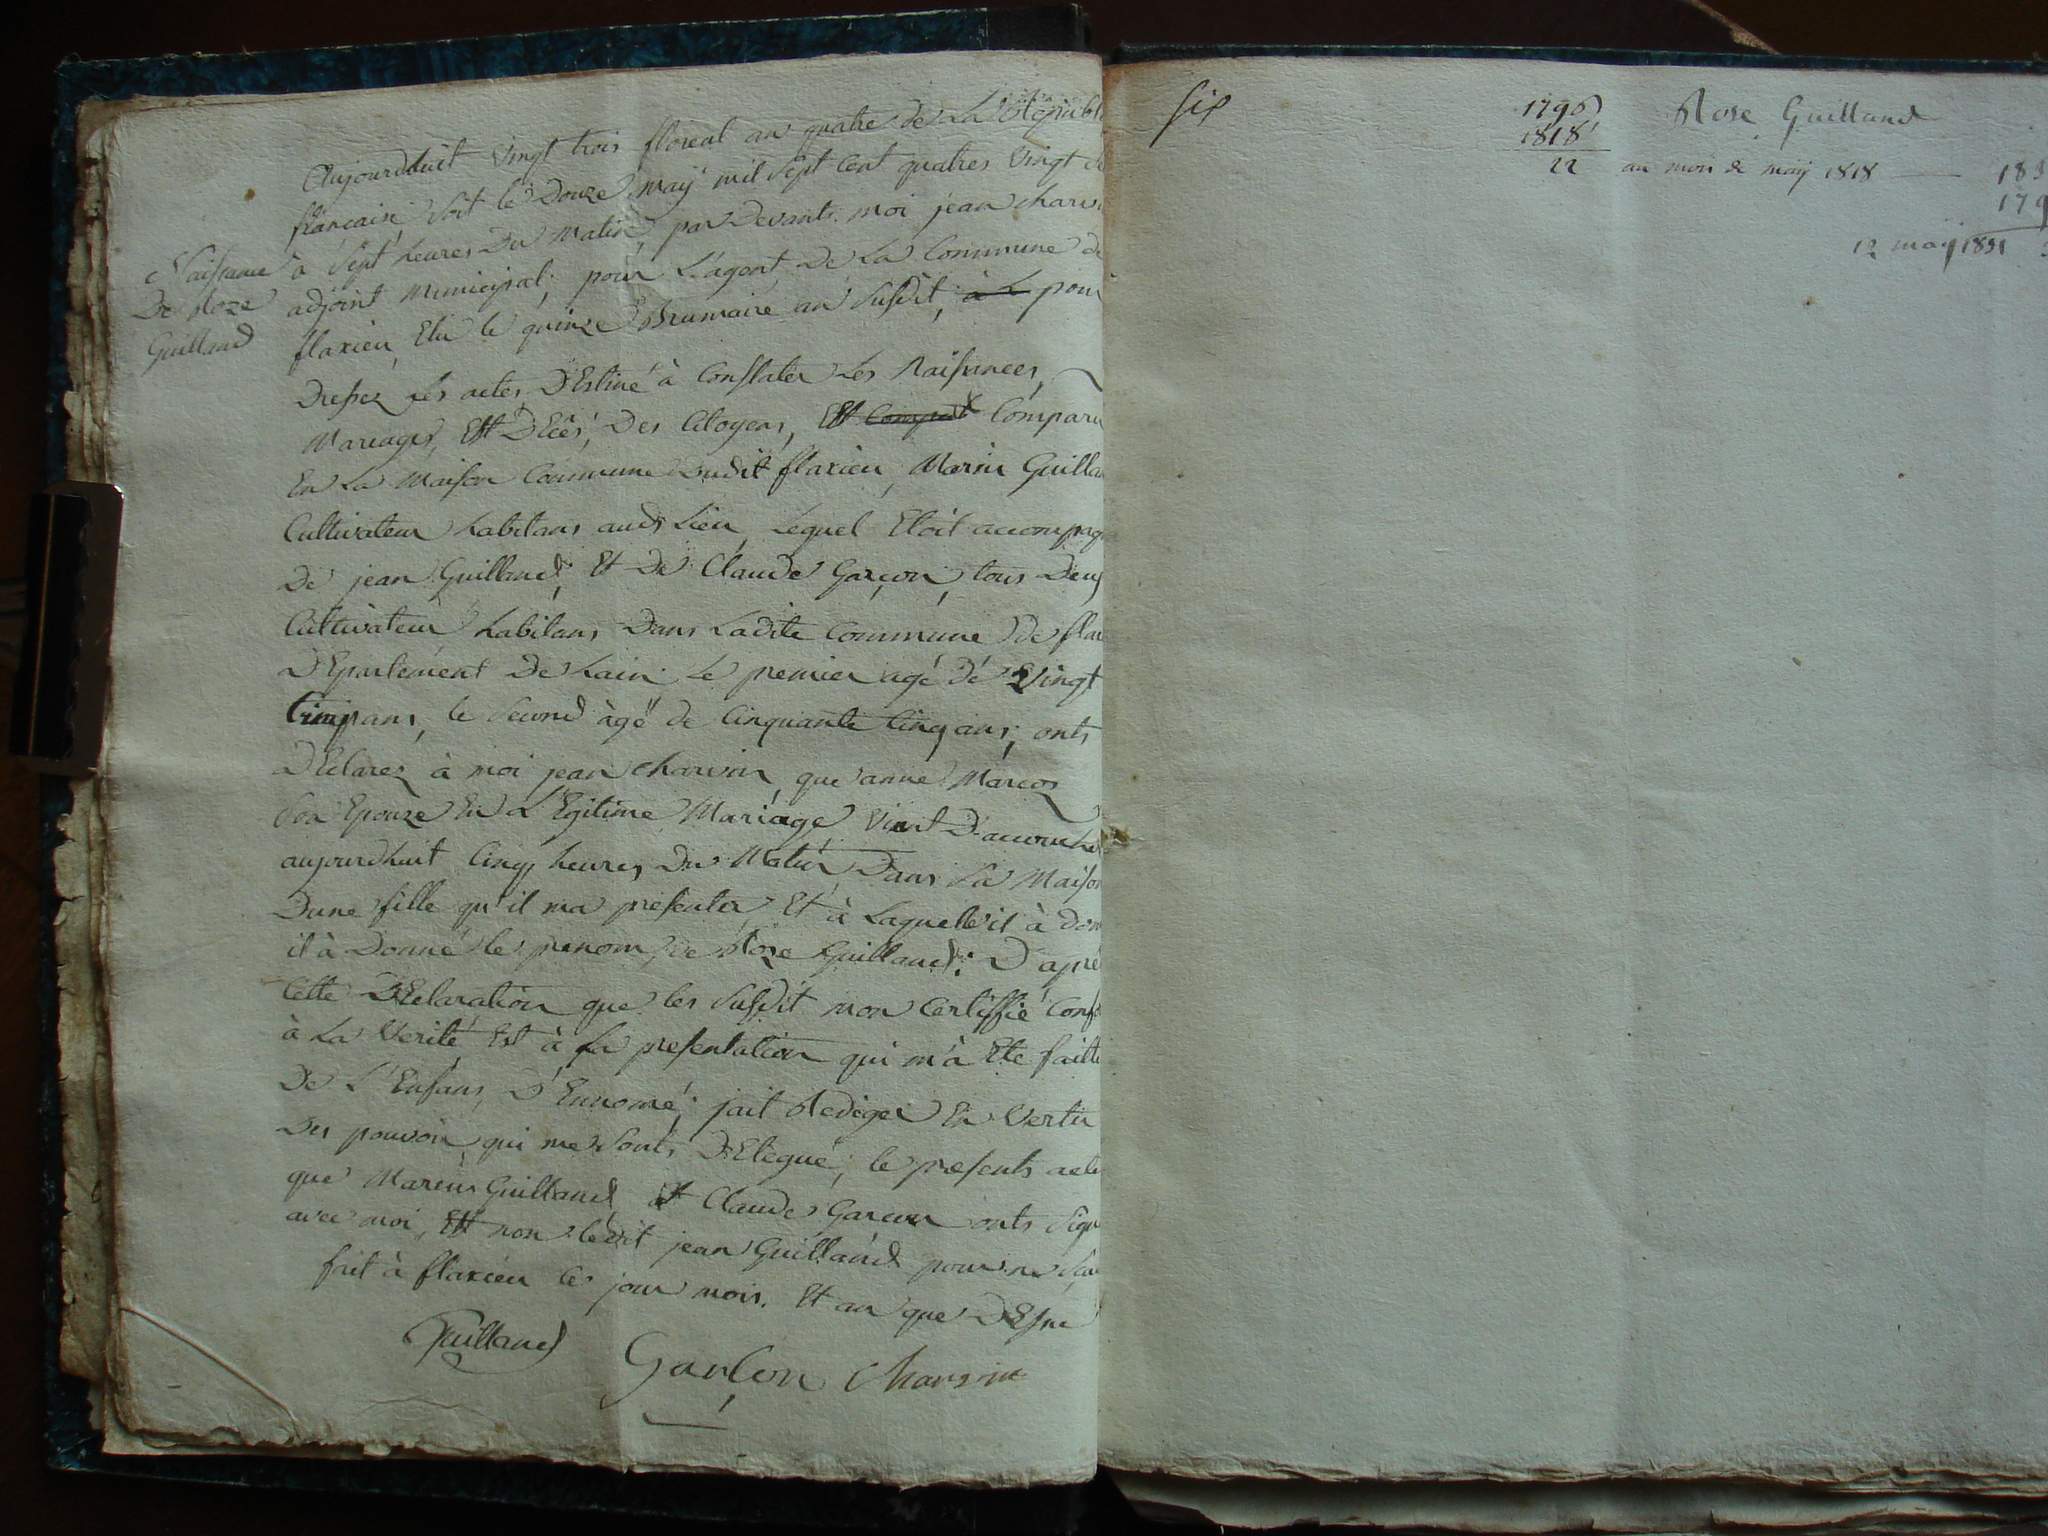 Aujourdhuit vingt trois floreal an quatre de La Republi
francaise, soit le Douze maÿ mil sept cent quatres vingt
à sept heures Du Matin, par Devants moi jean charvi
adjoint Municipal, pour L'agent De La Commune de
flaxieu, Elu le quinze Brumaire an susdit, à L pour
Dressez les actes, D'Estiné à Constater Les Naissances,
Mariages, Est DEcès, Des Citoyens, Est Comparu
En La Maison Commune Dudit flaxieu, Marin Guillau
Cultivateur habitans audt Lieu, Lequel Etoit accompag
De jean Guilland, Et De Claude Garçon, tous Deux
Cultivateur habitans Dans Ladite Commune de flax
DEpartement De Lain Le premier agé dé Vingt
Cinq ans, le second àgé de Cinquante Cinq ans, onts
DEclarez à moi jean charvin, que anne Marcoz
son Epouze En LEgitime Mariage Vient D'accouche
aujourdhuit Cinq heures Du Matin Dans sa Maison
Dune fille qu'il ma presenter, Et à Laquelle il à don
il à Donné le prenom de Roze Guilland: D'aprè
Cette DEclaration que les susdit mon Certiffié Conf
à La Verité, Est à La presentation qui m'à Ete faitte
De L'Enfans, D'Ennomé, jait Rediger En Vertu
Des pouvoir qui me sonts DElegué, le presents acte
que Marin Guilland, Et Claude Garçon onts sign
avec moi, Est non ledit jean Guilland pour ne sav
fait à flaxieu les jour mois. Et an que DEssus
Guilland
Garçon Charvin
Naissance
De Roze
Guilland
six
1796 Rose Guilland
1818
22 au mois de maÿ 1818
183
179
12 maÿ 1831